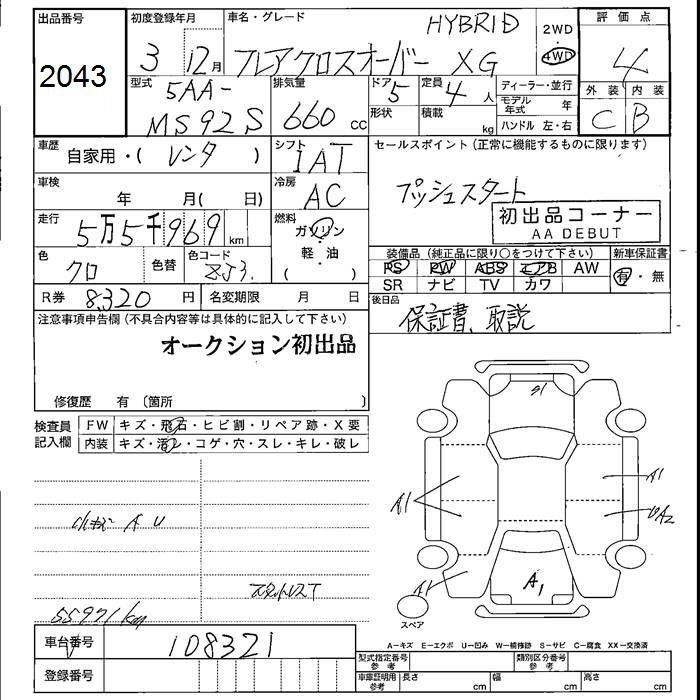 出品番号
2043
初度登録年月
3年 12月
車名・グレード
HYBRID
フレアクロスオーバー XG
2WD
・
4WD
評価点
4
外装 内装
C B
型式
5AA-
MS92S
排気量
660 cc
ドア
5
形状
定員
4人
積載
kg
ディーラー・並行
モデル年式 年
ハンドル 左・右
車歴
自家用・( レンタ )
シフト
IAT
セールスポイント(正常に機能するものに限ります)
プッシュスタート
初出品コーナー
AA DEBUT
車検
年 月( 日)
冷房
AC
走行
5万5千969 km
燃料
ガソリン
・
軽・油
( )
色
クロ
色替
色コード
ZJ3
装備品(純正品に限り○をつけて下さい)
PS PW ABS エアB AW
SR ナビ TV カワ
新車保証書
有・無
R券 8,320 円
名変期限 月 日
後日品
保証書、取説
注意事項申告欄(不具合内容等は具体的に記入して下さい)
オークション初出品
修復歴 有〔箇所
検査員
記入欄
FW キズ・飛石・ヒビ割・リペア跡・X要
内装 キズ・汚レ・コゲ・穴・スレ・キレ・破レ
小キズ A U
スタットレスT
55971km
S1
A1
A1
UA2
A1
A1
スペア
A-キズ E-エクボ U-凹み W-補修跡 S-サビ C-腐食 XX-交換済
車台番号 108321
登録番号
型式指定番号
参考
類別区分番号
参考
車庫証明用
参考
長さ cm
幅 cm
高さ cm